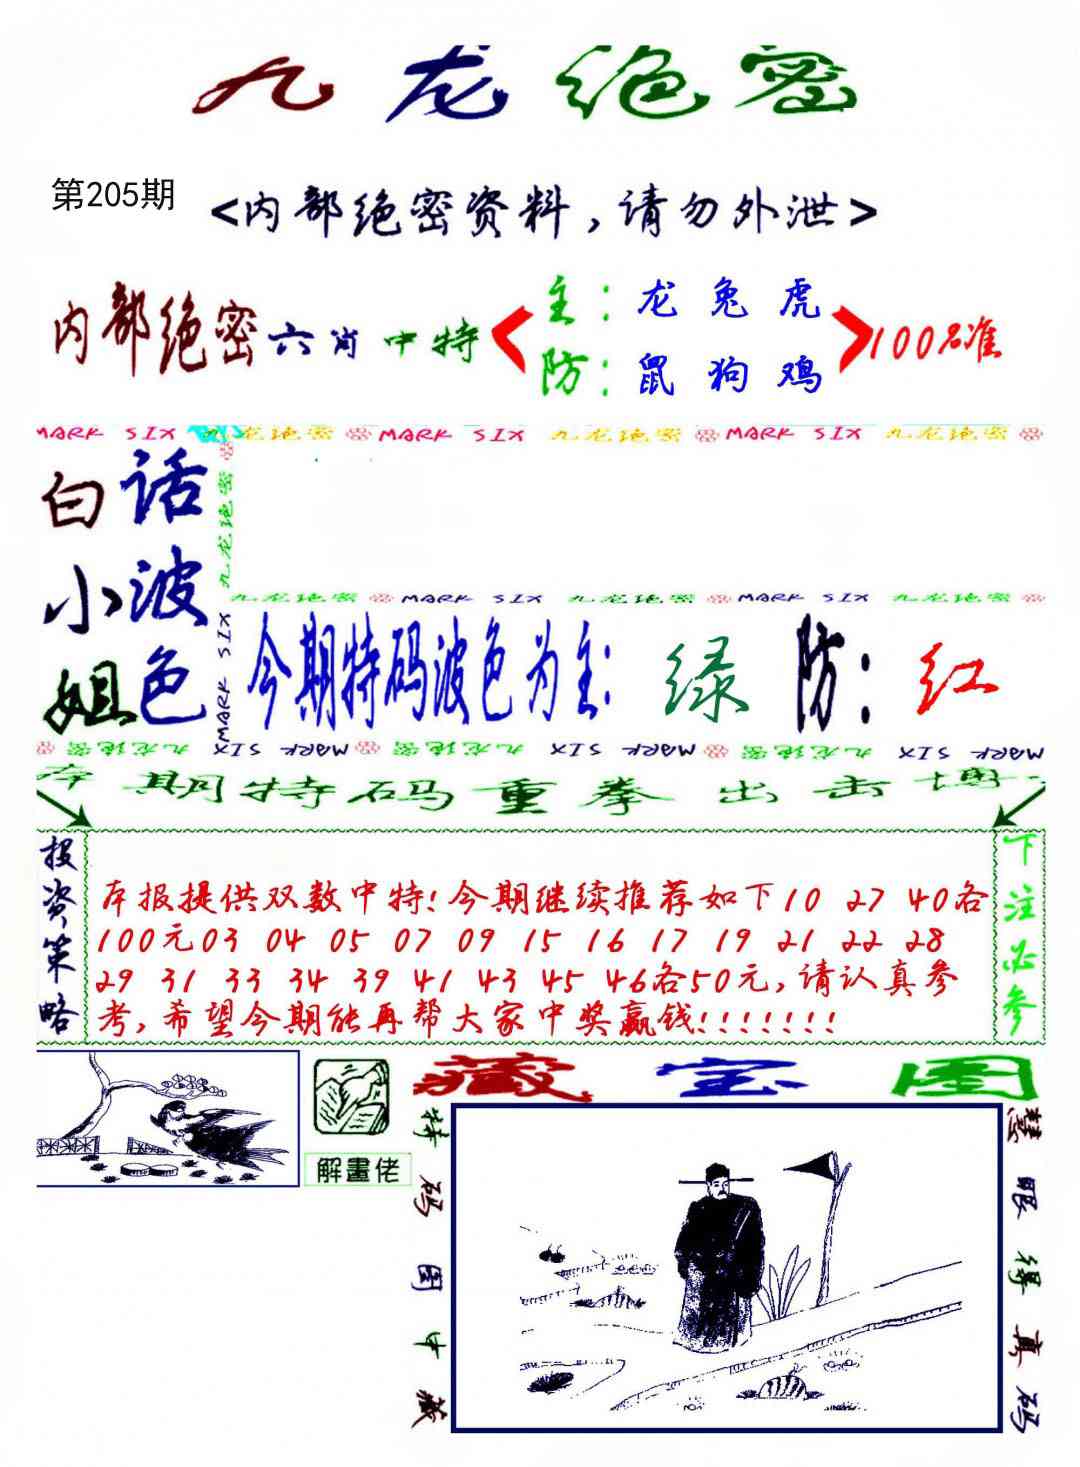 九龙绝密
第205期
<内部绝密资料,请勿外泄>
内部绝密六肖中特
主:龙兔虎
防:鼠狗鸡
100%准
MARK SIX 九龙绝密 MARK SIX 九龙绝密 MARK SIX 九龙绝密
白话
小波
姐色
九龙绝密
MARK SIX
九龙绝密 MARK SIX 九龙绝密 MARK SIX 九龙绝密
今期特码波色为主:绿 防:红
九龙绝密 MARK SIX 九龙绝密 MARK SIX 九龙绝密 MARK SIX
本期特码重拳出击博
投资策略
本报提供双数中特!今期继续推荐如下10 27 40各
100元03 04 05 07 09 15 16 17 19 21 22 28
29 31 33 34 39 41 43 45 46各50元,请认真参
考,希望今期能再帮大家中奖赢钱!!!!!!!
下注必参
解畫佬
藏宝图
特码图中藏
慧眼得真码